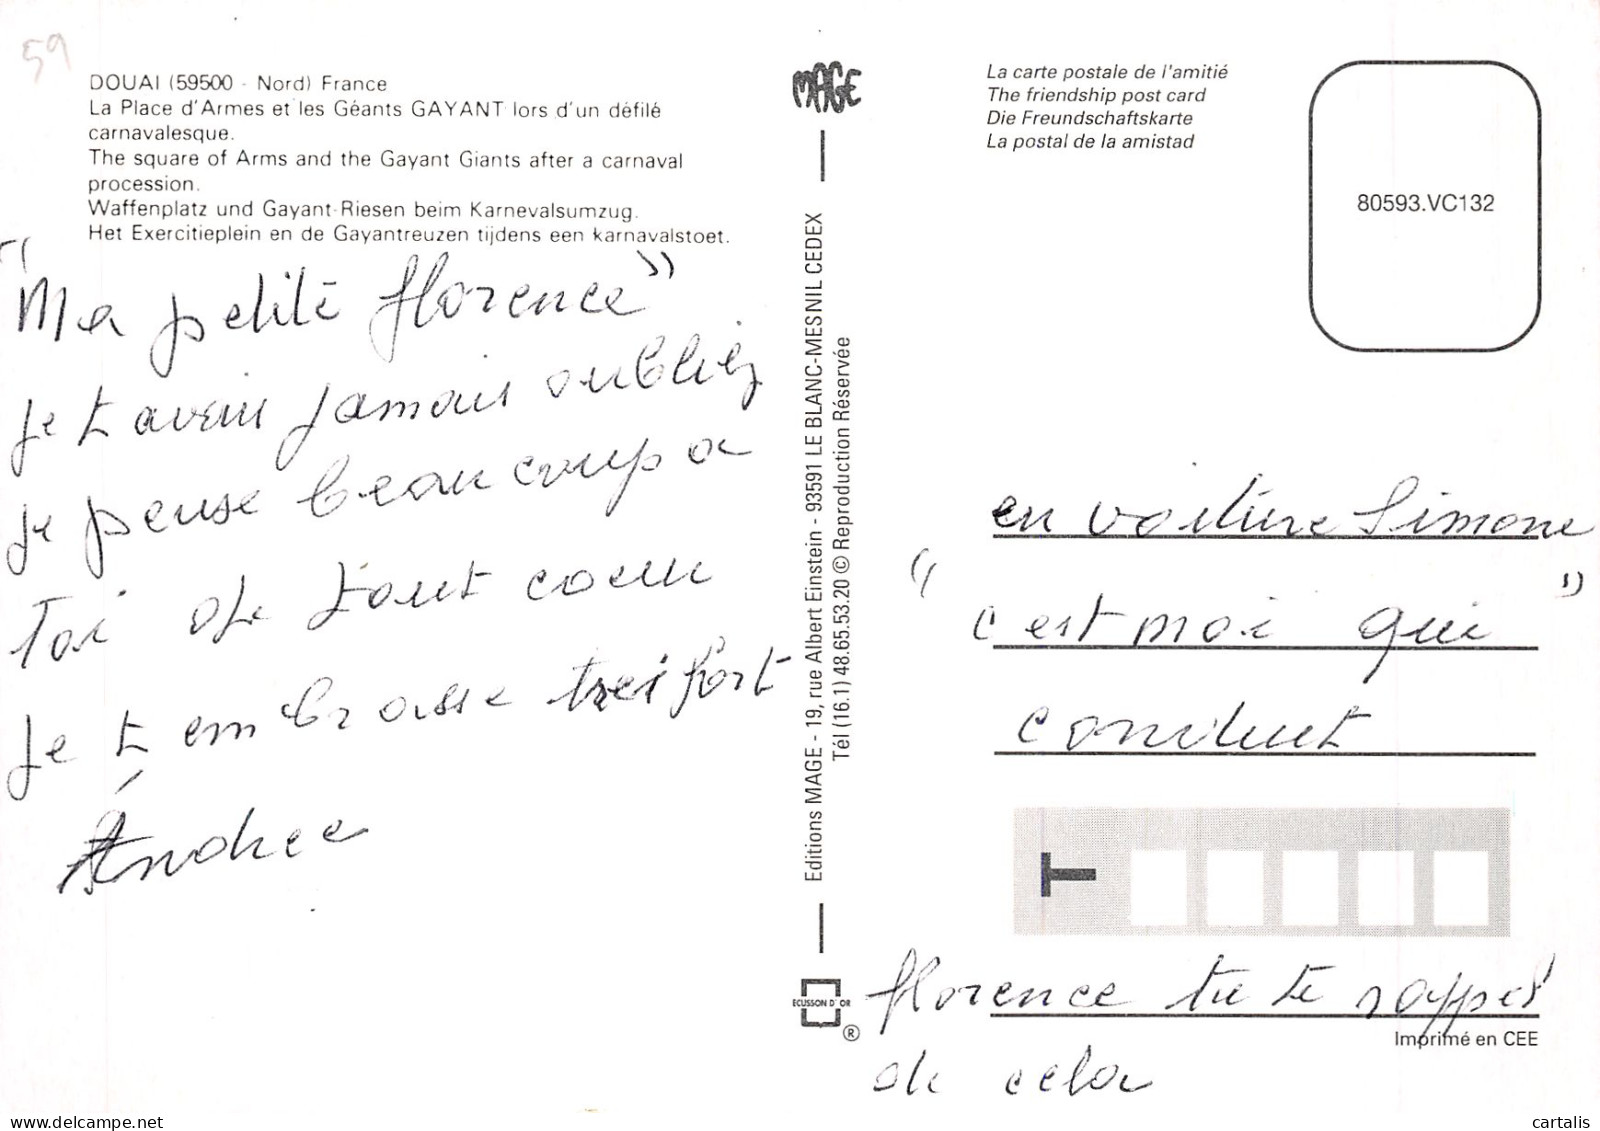 59
DOUAI (59500 - Nord) France
La Place d'Armes et les Géants GAYANT lors d'un défilé
carnavalesque.
The square of Arms and the Gayant Giants after a carnaval
procession.
Waffenplatz und Gayant-Riesen beim Karnevalsumzug.
Het Exercitieplein en de Gayantreuzen tijdens een karnavalstoet.
"Ma petite florence"
je t avais jamais oubliez
je pense beaucoup a
Toi de tout coeur
je t embrasse tres fort
Andrée
MAGE
Editions MAGE - 19, rue Albert Einstein - 93591 LE BLANC-MESNIL CEDEX
Tél (16.1) 48.65.53.20 © Reproduction Réservée
ECUSSON D'OR
®
La carte postale de l'amitié
The friendship post card
Die Freundschaftskarte
La postal de la amistad
80593.VC132
en voiture Simone
"c est moi qui"
conduit
florence tu te rappes
de cela
Imprimé en CEE
cartalis